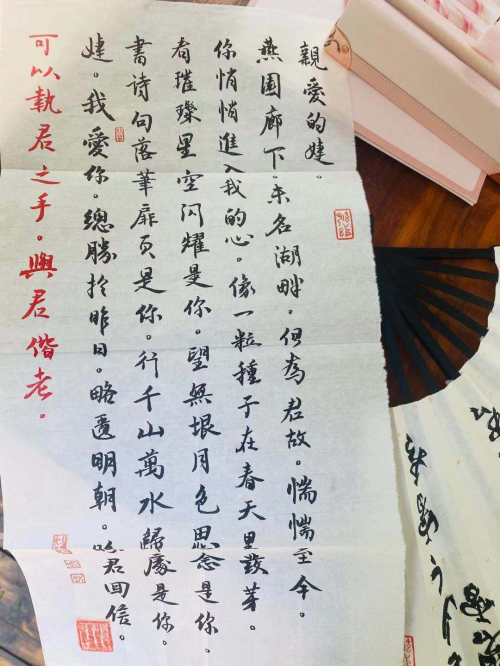 親愛的婕．
燕園廊下．未名湖畔．但為君故。惴惴至今。
你悄悄進入我的心。像一粒種子在春天里發芽。
看璀璨星空閃耀是你。望無垠月色思念是你．
書诗句落筆扉頁是你。行千山萬水歸處是你．
婕．我愛你．總勝於昨日。略遜明朝。盼君回信。
可以執君之手。與君偕老．